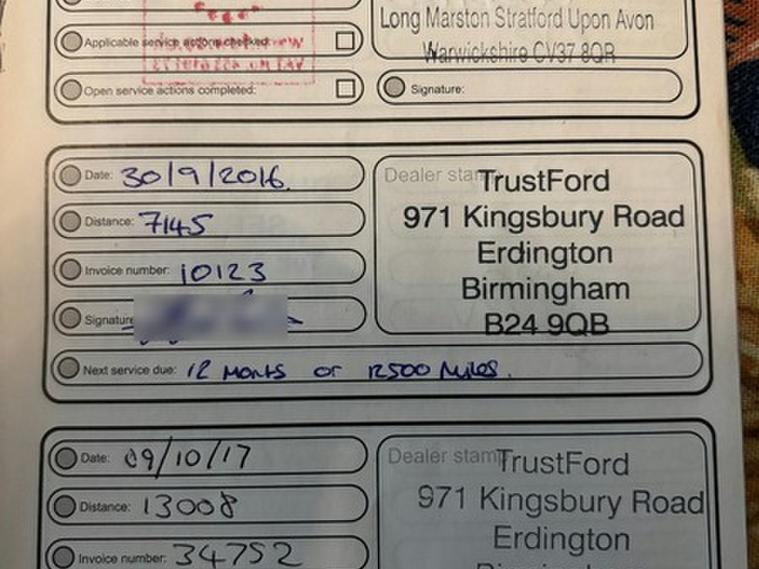 Long Marston Stratford Upon Avon
Applicable service actions checked:
Warwickshire CV37 8QR
Open service actions completed:
Signature:
Date: 30/9/2016.
Dealer stamp
TrustFord
971 Kingsbury Road
Erdington
Birmingham
B24 9QB
Distance: 7145
Invoice number: 10123
Signature
Next service due: 12 Monts or 12500 Miles.
Date: 09/10/17
Dealer stamp
TrustFord
971 Kingsbury Road
Erdington
Distance: 13008
Invoice number: 34752